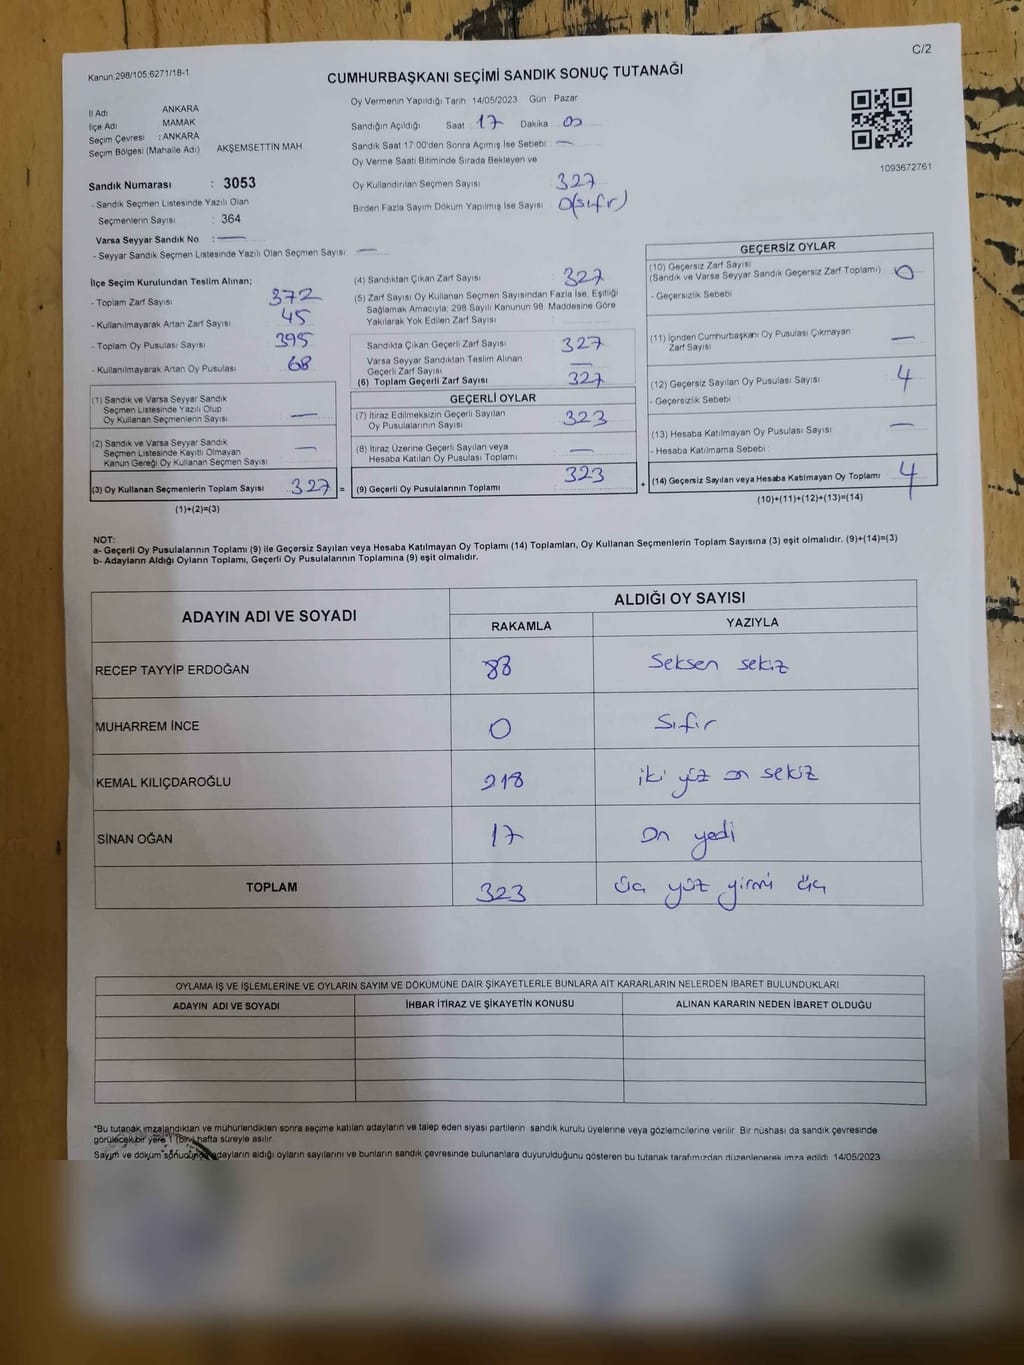 C/2
Kanun.298/105,6271/18-1
CUMHURBAŞKANI SEÇİMİ SANDIK SONUÇ TUTANAĞI
İl Adı ANKARA
İlçe Adı MAMAK
Seçim Çevresi : ANKARA
Seçim Bölgesi (Mahalle Adı) AKŞEMSETTİN MAH
Oy Vermenin Yapıldığı Tarih 14/05/2023 Gün Pazar
Sandığın Açıldığı Saat 17 Dakika 00
Sandık Saat 17:00'den Sonra Açmış İse Sebebi —
Oy Verme Saati Bitiminde Sırada Bekleyen ve
Oy Kullandırılan Seçmen Sayısı 327
Birden Fazla Sayım Döküm Yapılmış İse Sayısı 0(sıfır)
1093672761
Sandık Numarası : 3053
- Sandık Seçmen Listesinde Yazılı Olan
Seçmenlerin Sayısı : 364
Varsa Seyyar Sandık No : —
- Seyyar Sandık Seçmen Listesinde Yazılı Olan Seçmen Sayısı : —
İlçe Seçim Kurulundan Teslim Alınan;
- Toplam Zarf Sayısı 372
- Kullanılmayarak Artan Zarf Sayısı 45
- Toplam Oy Pusulası Sayısı 395
- Kullanılmayarak Artan Oy Pusulası 68
(1) Sandık ve Varsa Seyyar Sandık
Seçmen Listesinde Yazılı Olup
Oy Kullanan Seçmenlerin Sayısı —
(2) Sandık ve Varsa Seyyar Sandık
Seçmen Listesinde Kayıtlı Olmayan
Kanun Gereği Oy Kullanan Seçmen Sayısı —
(3) Oy Kullanan Seçmenlerin Toplam Sayısı 327 =
(1)+(2)=(3)
(4) Sandıktan Çıkan Zarf Sayısı 327
(5) Zarf Sayısı Oy Kullanan Seçmen Sayısından Fazla İse, Eşitliği
Sağlamak Amacıyla; 298 Sayılı Kanunun 98. Maddesine Göre
Yakılarak Yok Edilen Zarf Sayısı
Sandıkta Çıkan Geçerli Zarf Sayısı 327
Varsa Seyyar Sandıktan Teslim Alınan
Geçerli Zarf Sayısı —
(6) Toplam Geçerli Zarf Sayısı 327
GEÇERLİ OYLAR
(7) İtiraz Edilmeksizin Geçerli Sayılan
Oy Pusulalarının Sayısı 323
(8) İtiraz Üzerine Geçerli Sayılan veya
Hesaba Katılan Oy Pusulası Toplamı —
(9) Geçerli Oy Pusulalarının Toplamı 323 +
GEÇERSİZ OYLAR
(10) Geçersiz Zarf Sayısı
(Sandık ve Varsa Seyyar Sandık Geçersiz Zarf Toplamı) 0
- Geçersizlik Sebebi
(11) İçinden Cumhurbaşkanı Oy Pusulası Çıkmayan
Zarf Sayısı —
(12) Geçersiz Sayılan Oy Pusulası Sayısı 4
- Geçersizlik Sebebi
(13) Hesaba Katılmayan Oy Pusulası Sayısı —
- Hesaba Katılmama Sebebi
(14) Geçersiz Sayılan veya Hesaba Katılmayan Oy Toplamı 4
(10)+(11)+(12)+(13)=(14)
NOT:
a- Geçerli Oy Pusulalarının Toplamı (9) ile Geçersiz Sayılan veya Hesaba Katılmayan Oy Toplamı (14) Toplamları, Oy Kullanan Seçmenlerin Toplam Sayısına (3) eşit olmalıdır. (9)+(14)=(3)
b- Adayların Aldığı Oyların Toplamı, Geçerli Oy Pusulalarının Toplamına (9) eşit olmalıdır.
ADAYIN ADI VE SOYADI ALDIĞI OY SAYISI
RAKAMLA YAZIYLA
RECEP TAYYİP ERDOĞAN 88 Seksen sekiz
MUHARREM İNCE 0 Sıfır
KEMAL KILIÇDAROĞLU 218 iki yüz on sekiz
SİNAN OĞAN 17 On yedi
TOPLAM 323 üç yüz yirmi üç
OYLAMA İŞ VE İŞLEMLERİNE VE OYLARIN SAYIM VE DÖKÜMÜNE DAİR ŞİKAYETLERLE BUNLARA AİT KARARLARIN NELERDEN İBARET BULUNDUKLARI
ADAYIN ADI VE SOYADI İHBAR İTİRAZ VE ŞİKAYETİN KONUSU ALINAN KARARIN NEDEN İBARET OLDUĞU
*Bu tutanak imzalandıktan ve mühürlendikten sonra seçime katılan adayların ve talep eden siyasi partilerin sandık kurulu üyelerine veya gözlemcilerine verilir. Bir nüshası da sandık çevresinde
görülecek bir yere 1 (Bir) hafta süreyle asılır.
Sayım ve döküm sonucunda adayların aldığı oyların sayılarını ve bunların sandık çevresinde bulunanlara duyurulduğunu gösteren bu tutanak tarafımızdan düzenlenerek imza edildi. 14/05/2023